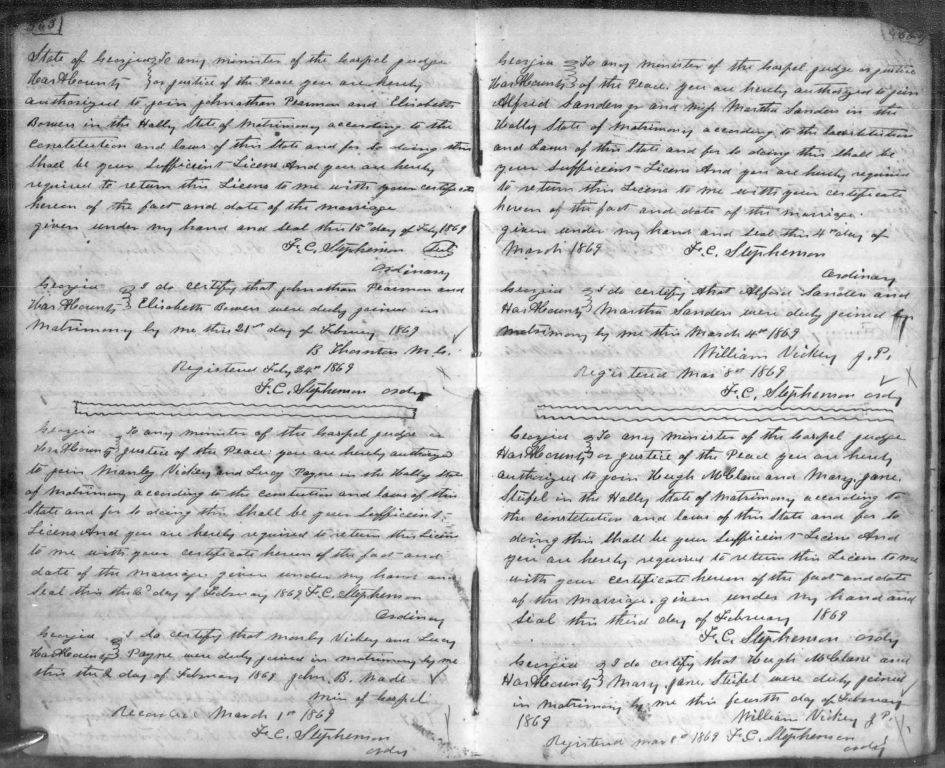 State of Georgia To any minister of the Gospel judge
Hart County or justice of the Peace you are hereby
authorized to join Johnathan Pearman and Elizabeth
Bowers in the Holly State of Matrimony according to the
constitution and laws of this State and for so doing this
Shall be your Sufficient Licens And you are hereby
required to return this Licens to me with your certificate
hereon of the fact and date of the marriage
given under my hand and seal this 15th day of Feby 1869
F. C. Stephenson
Ordinary
Georgia I do certify that Johnathan Pearman and
Hart County Elizabeth Bowers were duly joined in
Matrimony by me this 21st day of Febuary 1869
B Thornton M.G.
Registered Feby 24th 1869
F. C. Stephenson ordy
Georgia To any minister of the Gospel judge or
Hart County justice of the Peace you are hereby authorized
to join Manley Vickey and Lucy Payne in the Holly State
of Matrimony according to the constution and laws of this
State and for so doing this Shall be your Sufficient
Licens And you are hereby required to return this Licens
to me with your certificate hereon of the fact and
date of the marriage given under my hand and
Seal this day of Febuary 1869 F. C. Stephenson
Ordinary
Georgia I do certify that Manly Vickey and Lucy
Hart County Payne were duly joined in matrimony by me
this the day of Febuary 1869 John B. Wade
Min of Gospel
Recorded March 1st 1869
F. C. Stephenson
ordy
Georgia To any minister of the Gospel judge or justice
Hart County of the Peace. you are hereby authorized to join
Alfred Sanders and Miss Martha Sanders in the
Holly State of Matrimony according to the Constitution
and Laws of this State and for so doing this Shall be
your Sufficient Licens And you are hereby required
to return this Licens to me with your certificate
hereon of the fact and date of the marriage.
given under my hand and seal this 4th day of
March 1869 F. C. Stephenson
Ordinary
Georgia I do certify that Alfred Sanders and
Hart County Martha Sanders were duly joined
matrimony by me this March 4th 1869
William Vickey J. P.
Registered Mar 8th 1869
F. C. Stephenson ordy
Georgia To any Minister of the Gospel judge
Hart County or justice of the Peace you are hereby
authorized to join Hugh McClane and Mary Jane
Steifel in the Holly State of Matrimony according to
the constitution and laws of this State and for so
doing this Shall be your Sufficient Licens And
you are hereby required to return this Licens to me
with your certificate hereon of the fact and date
of the marriage. given under my hand and
Seal this third day of Febuary 1869
F. C. Stephenson ordy
Georgia I do certify that Hugh McClane and
Hart County Mary Jane Steifel were duly joined
in matrimony by me this fourth day of Febuary
1869 William Vickey J P.
Registered Mar 8th 1869 F. C. Stephenson
ordy